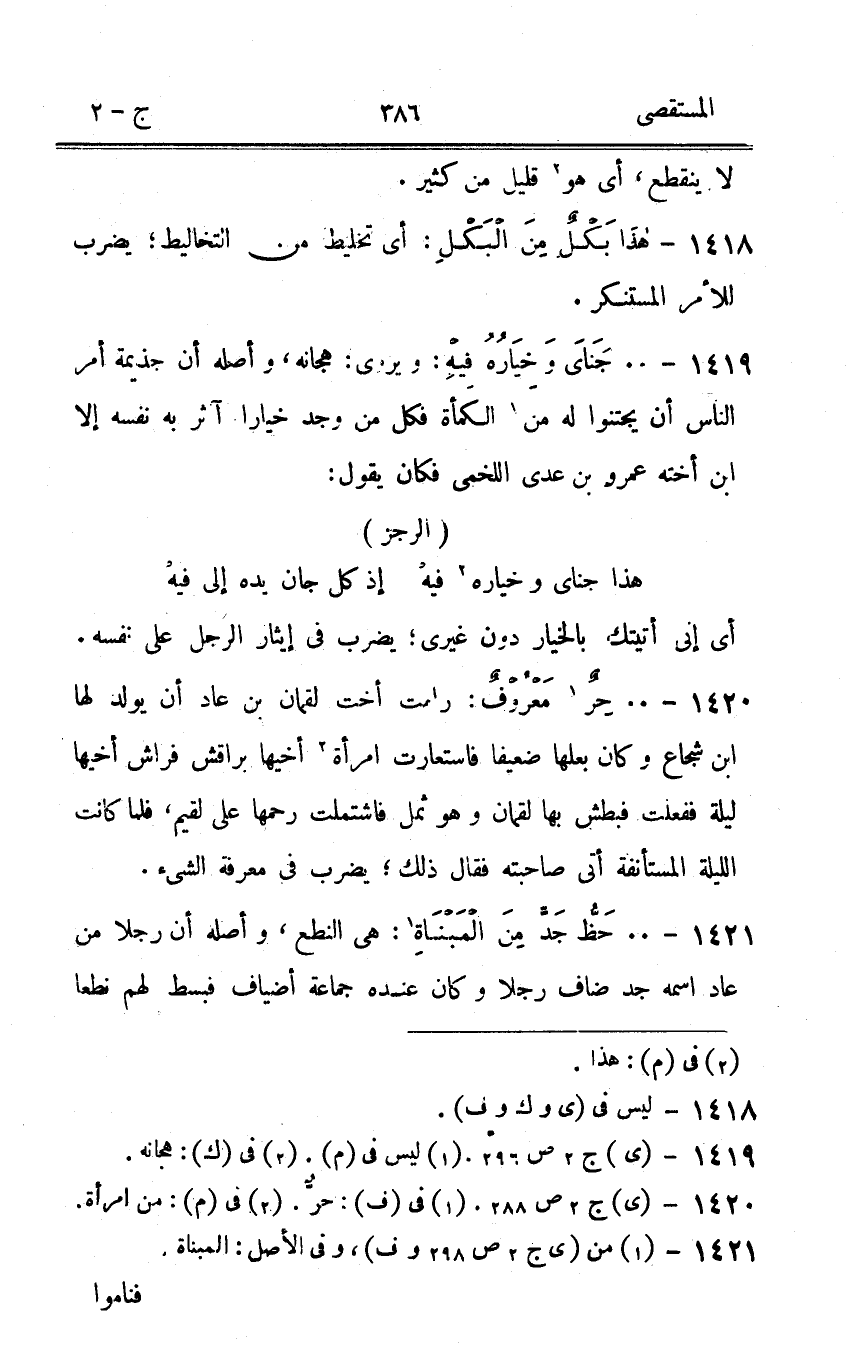 المستقصى ٣٨٦ ج – ٢
لا ينقطع، أى هو٢ قليل من كثير .
١٤١٨ – هٰذَا بَكْلٌ مِنَ الْبَكْلِ : أى تخليط من التخاليط؛ يضرب
للأمر المستنكر .
١٤١٩ – ٠٠ جَنَاىَ وَ خِيَارُهُ فِيهْ : و يروى: هجانه، و أصله أن جذيمة أمر
الناس أن يجتنوا له من١ الكمأة فكل من وجد خيارا آثر به نفسه إلا
ابن أخته عمرو بن عدى اللخمى فكان يقول:
( الرجز )
هذا جناى و خياره٢ فيهْ إذ كل جان يده إلى فيهْ
أى إنى أتيتك بالخيار دون غيرى؛ يضرب فى إيثار الرجل على نفسه .
١٤٢٠ – ٠٠ حِرٌ١ مَعْرُوفٌ : رامت أخت لقمان بن عاد أن يولد لها
ابن شجاع و كان بعلها ضعيفا فاستعارت امرأة٢ أخيها براقش فراش أخيها
ليلة ففعلت فبطش بها لقمان و هو ثمل فاشتملت رحمها على لقيم، فلما كانت
الليلة المستأنفة أتى صاحبته فقال ذلك؛ يضرب فى معرفة الشىء .
١٤٢١ – ٠٠ حَظُّ جَدٍّ مِنَ الْمَبْنَاةِ١ : هى النطع، و أصله أن رجلا من
عاد اسمه جد ضاف رجلا و كان عنده جماعة أضياف فبسط لهم نطعا
(٢) فى (م) : هذا .
١٤١٨ – ليس فى (ى و ك و ف) .
١٤١٩ – (ى) ج ٢ ص ٢٩٦ . (١) ليس فى (م) . (٢) فى (ك) : هجانه .
١٤٢٠ – (ى) ج ٢ ص ٢٨٨ . (١) فى (ف) : حرٌّ . (٢) فى (م) : من امرأة .
١٤٢١ – (١) من (ى ج ٢ ص ٢٩٨ و ف)، و فى الأصل : المبناة .
فناموا